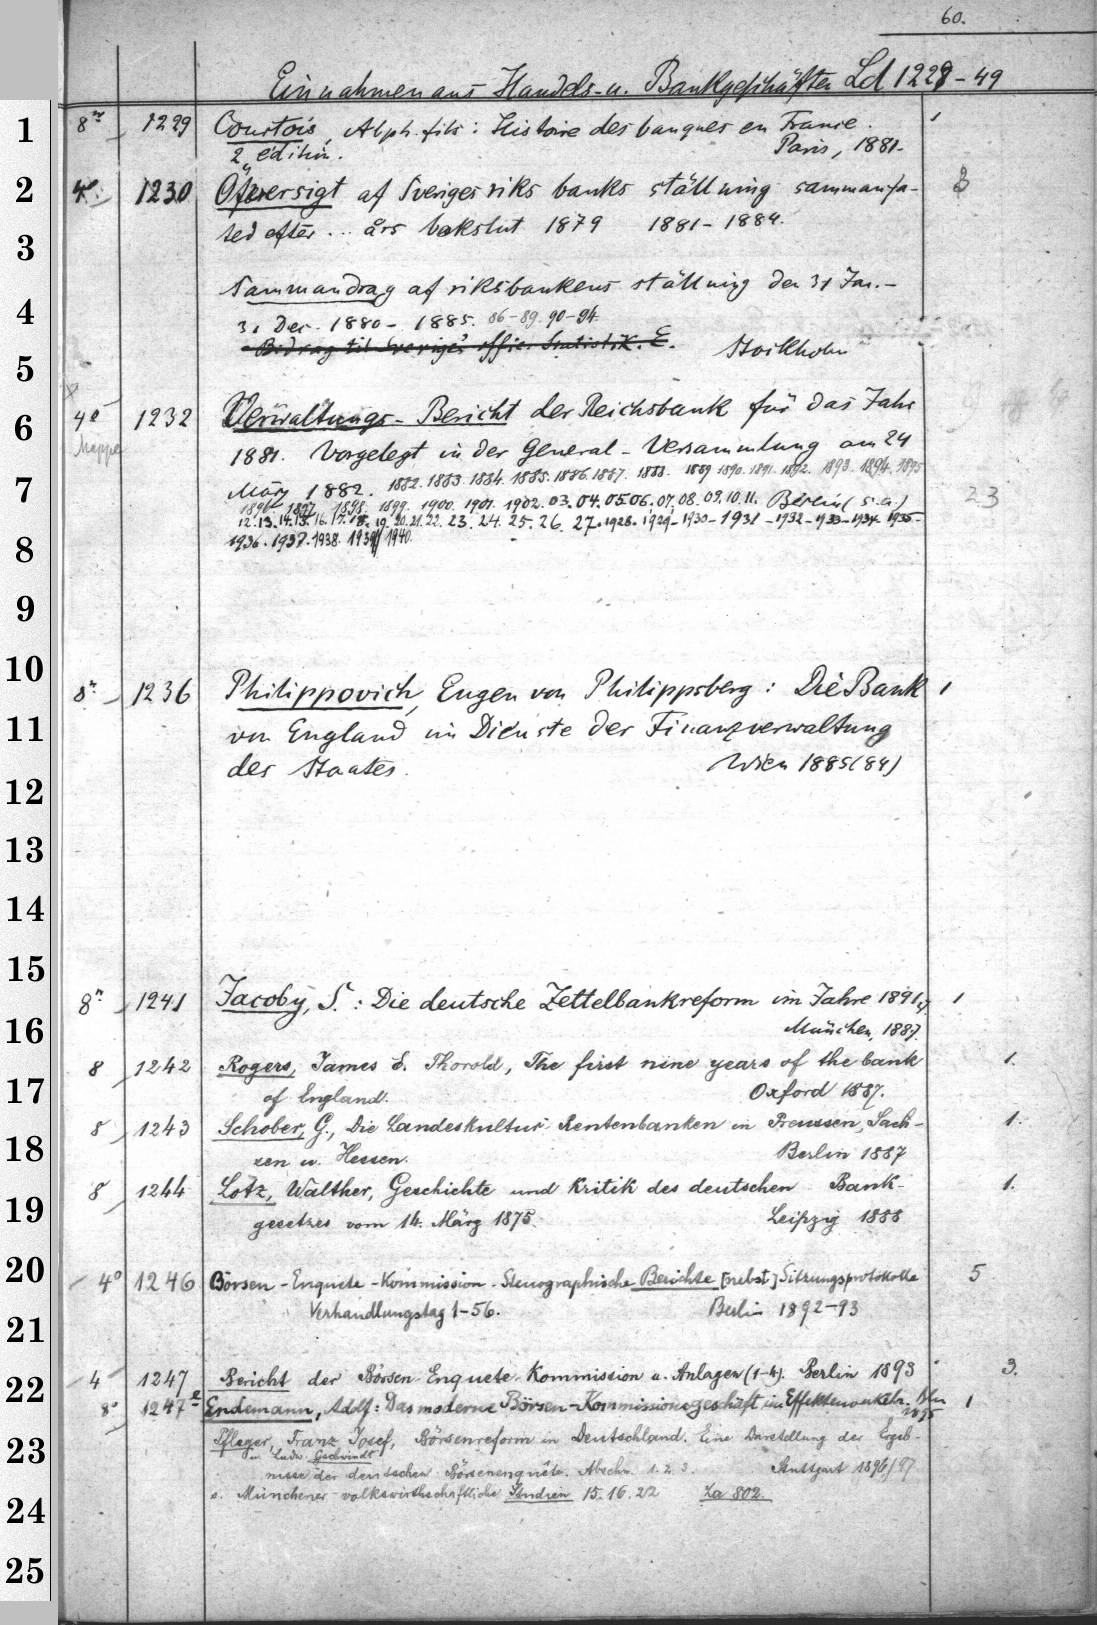 60.
Einnahmen aus Handels- u. Bankgeschäften Ld 1228-49
1 8º 1229 Courtois, Alph. fils: Histoire des banques en France. 1
2e édition. Paris, 1881.
2 4º 1230 Öfversigt af Sveriges riks banks ställning sammanfa- 3
3 ted efter ... års bokslut 1879 1881-1884.
4 Sammandrag af riksbankens ställning den 31 Jan.-
31 Dec. 1880- 1885. 86-89. 90-94.
5 Bidrag til Sveriges offic. Statistik. E. Stockholm
6 4º 1232 Verwaltungs-Bericht der Reichsbank für das Jahr
Mappe 1881. Vorgelegt in der General-Versammlung am 24
7 März 1882. 1882. 1883. 1884. 1885. 1886. 1887. 1888. 1889 1890. 1891. 1892. 1893. 1894. 1895 23
1896. 1897. 1898. 1899. 1900. 1901. 1902. 03. 04. 05 06. 07. 08. 09. 10. 11. Berlin (s.a.)
12. 13. 14. 15. 16. 17. 18. 19. 20. 21. 22. 23. 24. 25. 26. 27. 1928. 1929- 1930- 1931 -1932 -1933-1934- 1935-
8 1936. 1937. 1938. 1939/ 1940.
9
10
8º 1236 Philippovich, Eugen von Philippsberg: Die Bank 1
11 von England im Dienste der Finanzverwaltung
des Staates. Wien 1885(84)
12
13
14
15
8º 1241 Jacoby, S.: Die deutsche Zettelbankreform im Jahre 1891. 1
16 München, 1887.
8 1242 Rogers, James E. Thorold, The first nine years of the bank 1.
17 of England. Oxford 1887.
8 1243 Schober, G., Die Landeskultur-Rentenbanken in Preussen, Sach- 1.
18 sen u. Hessen. Berlin 1887
8 1244 Lotz, Walther, Geschichte und Kritik des deutschen Bank- 1.
19 gesetzes vom 14. März 1875. Leipzig 1888
20 4º 1246 Börsen-Enquete-Kommission. Stenographische Berichte [nebst] Sitzungsprotokolle 5
Verhandlungstag 1-56. Berlin 1892-93
21
22 4 1247 Bericht der Börsen-Enquete-Kommission u. Anlagen (1-4). Berlin 1893 3.
8º 1247a Endemann, Adolf: Das moderne Börsen-Kommissionsgeschäft im Effektenverkehr. Bln 1895 1
23 Pfleger, Franz Josef, Börsenreform in Deutschland. Eine Darstellung der Ergeb-
u. Ludw. Gschwindt
nisse der deutschen Börsenenquête. Abschn. 1. 2. 3. Stuttgart 1896/97
24 s. Münchener volkswirthschaftliche Studien 15. 16. 22 Za 802.
25